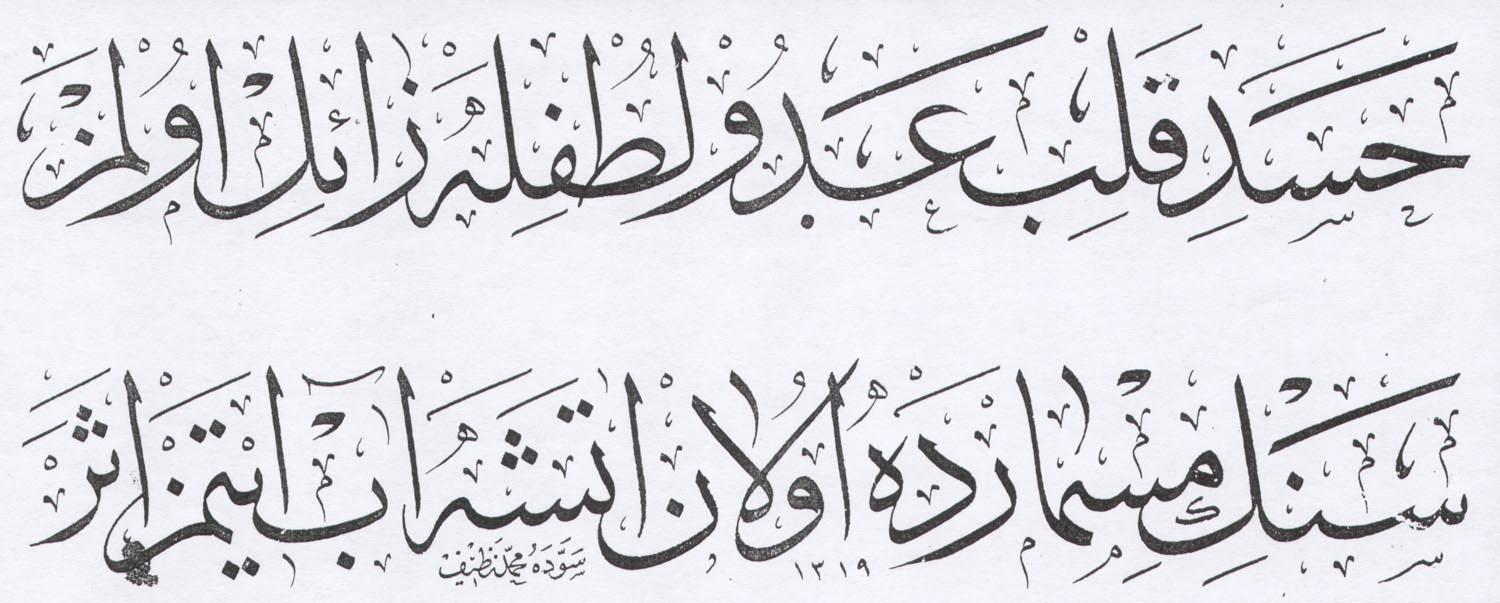 حَسَدِ قَلبِ عَدُو لُطفِله زائل اولمز
سَنكِ مِسماردَه اولان اتشه آب ايتمز اثر
سوّده محمّد نظيف ١٣١٩